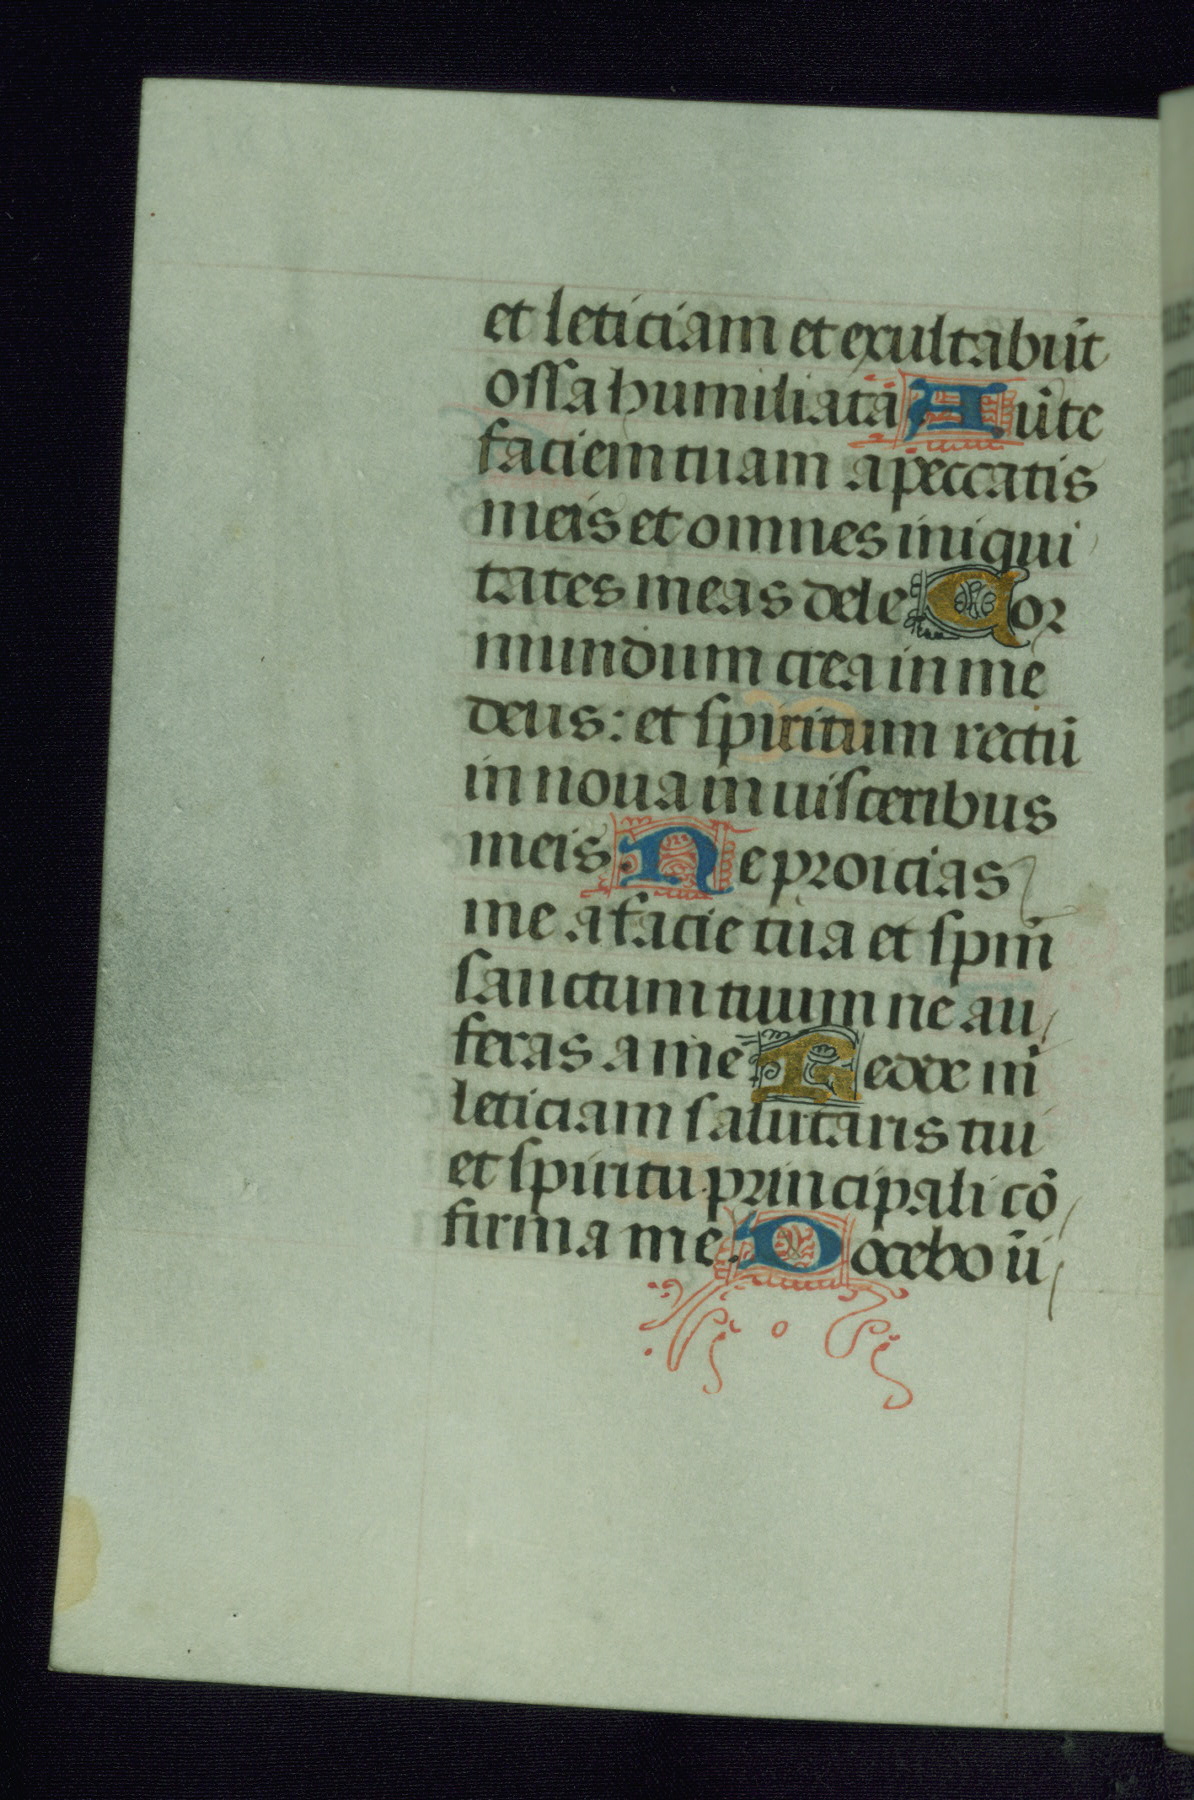 et leticiam et exultabūt
ossa humiliatā Auūte
faciem tuam a peccatis
meis et omnes iniqui
tates meas dele Cor
mundum crea in me
deus: et spiritum rectū
in noua in uisceribus
meis. Ne proicias
me a facie tua et spm̄
sanctum tuum ne au
feras a me Redde m̄
leticiam salutaris tui
et spiritu principali cō
firma me. Docebo ū